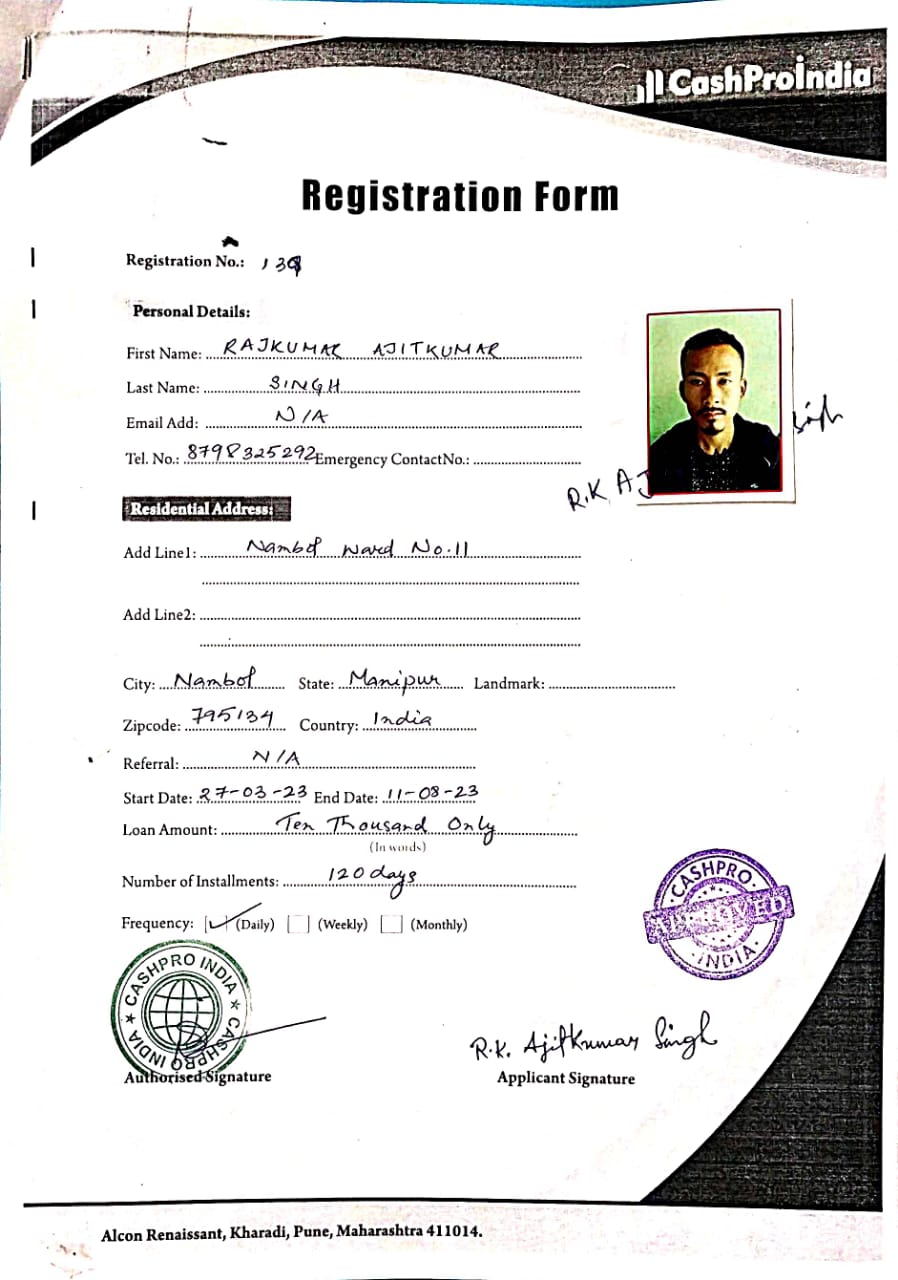 CashProIndia
Registration Form
Registration No.: 139
Personal Details:
First Name: RAJKUMAR AJITKUMAR
Last Name: SINGH
Email Add: N/A
Tel. No.: 8798325292 Emergency ContactNo.:
R.K AJ Singh
Residential Address:
Add Line1: Nambol Ward No.11
Add Line2:
City: Nambol State: Manipur Landmark:
Zipcode: 795134 Country: India
Referral: N/A
Start Date: 27-03-23 End Date: 11-08-23
Loan Amount: Ten Thousand Only
(In words)
Number of Installments: 120 days
Frequency: (Daily) (Weekly) (Monthly)
CASHPRO INDIA
APPROVED
CASHPRO INDIA ★ CASHPRO INDIA ★
R.K. Ajitkumar Singh
Authorised Signature Applicant Signature
Alcon Renaissant, Kharadi, Pune, Maharashtra 411014.